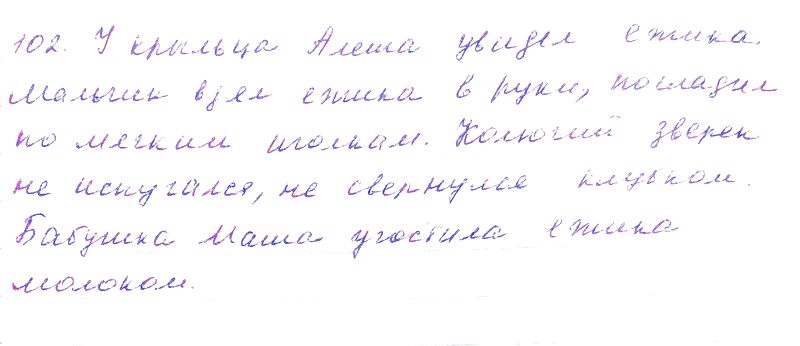 102. У крыльца Алеша увидел ежика.
Мальчик взял ежика в руки, погладил
по мягким иголкам. Колючий зверек
не испугался, не свернулся клубком.
Бабушка Маша угостила ежика
молоком.